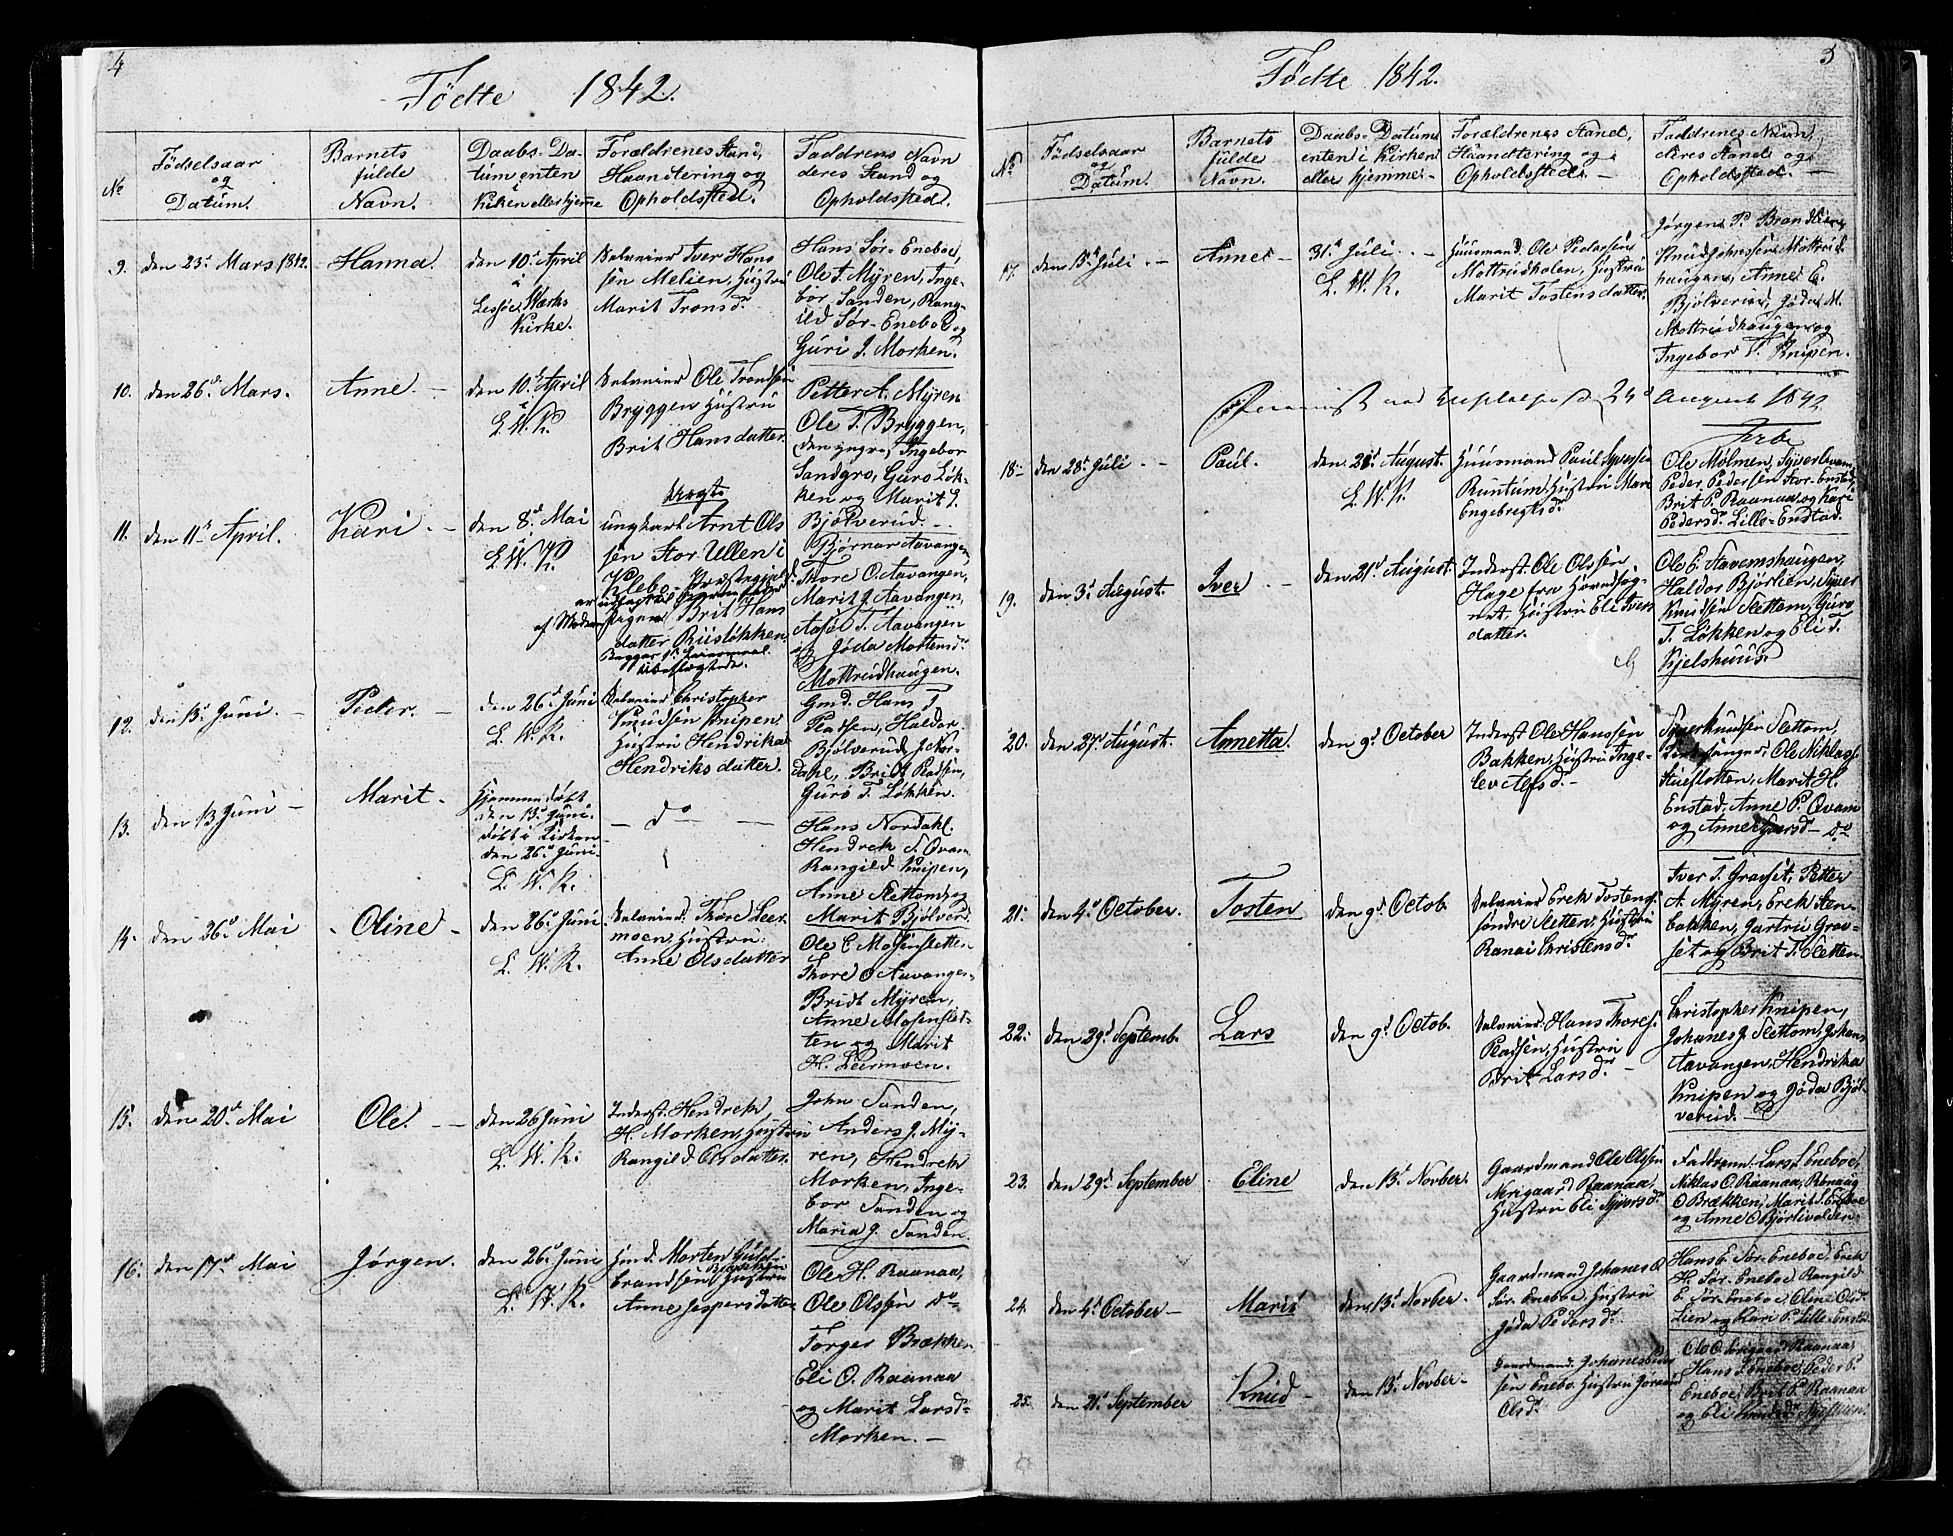 4
Födte 1842.
No
Födselsaar
og
Datum.
Barnets
fulde
Navn.
Daabs-Da-
tum enten
i
Kirken eller hjemme
Forældrenes Stand,
Haandtering og
Opholdssted.
Faddrens Navn
deres Stand og
Opholdssted.
9.
den 23d Mars. 1842.
Hanna.
den 10d April
i
Lessøe Værks
Kirke.
Selveier Iver Hans
sen Melien, Hustru
Marit Tronsd.
Hans Sør-Eneboe,
Ole T. Myren, Inge-
bor Sanden, Rang-
ild Sør-Eneboe og
Guri J. Morken.
10.
den 26d Mars.
Anne. —
den 10d April
i
L. W. K.
Selveier Ole Trondsen
Bryggen Hustru
Brit Hansdatter.
Petter A. Myren
Ole T. Bryggen,
den yngre, Ingebor
Sandgro, Guro Løk-
ken og Marit L.
Bjølverud. —
11.
den 11d April.
Kari. —
den 8d Mai
i
L. W. K.
ungkarl Arnt Ols
sen Stor Ullen i
Klebo Præstegjeld
Pigen Brit Hans
datter Riisløkken
Begges 1ste Leiermaal
ubeslægtede.
Bjørnar Aavangen,
Thore O. Aavangen,
Marit J. Aavangen,
Aasøe T. Aavangen
og Jøda Mortensd.
Mottrudhaugen.
12.
den 13d Juni. —
Peder. —
den 26d Juni
L. W. K.
Selveier Christopher
Knudsen Knipen,
Hustru Hendrika
Hendriksdatter.
Gmd. Hans T.
Pladsen, Haldor
Bjølverud, J. Nor-
dahl, Bridt Pladsen,
Guro T. Løkken.
13.
den 13 Juni —
Marit.
Hjemmedøbt
den 13d Juni.
døbt i Kirken
den 26d Juni.
L. W. K.
— do —
Hans Nordahl.
Hendrek S. Qvam
Rangild Knipen,
Anne Slettom og
Marit Bjølverd.
14.
den 26d Mai
- Oline -
den 26d Juni
L. W. K.
Selveier Thore Leer-
moen, Hustru
Anne Olsdatter
Ole E. Mosensletten
Thore O. Aavangen
Bridt Myren,
Anne Mosenslet-
ten og Marit
H. Leermoen.
15.
den 20d Mai
Ole. —
den 26 Juni
L. W. K.
Inderst. Hendrek
H. Morken, Hustru
Rangild Olsdatter.
John Sanden,
Anders J. My-
ren, Hendrek
Morken, Inge-
bor Sanden og
Maria J. Sanden.
16.
den 17d Mai
Jørgen.
den 26d Juni
L. W. K.
Hmd. Morten Guld-
brandsen Brækken Hustru
Anne Jespersdatter
Ole H. Raanaa,
Ole Olsen do
Tørger Brækken
Eli O. Raanaa
og Marit Larsd.
Morken. —
5
Födte 1842.
No
Födselsaar
og
Datum.
Barnets
fulde
Navn.
Daabs-Datum
enten i Kirken
eller hjemme-
Forældrenes Stand,
Haandtering og
Opholdssted. —
Faddrenes Navn
deres Stand og
Opholdssted. —
17.
Anne -
31d Juli. —
L. W. K.
Huusmand Ole Pedersen
Mottrudholen, Hustru
Marit Tostensdatter.
Jørgen P. Brandlien,
Knud Johnssen Mottrud-
haugen, Anne E.
Bjølverud, Jøda M.
Mottrudhaugen og
Ingebor T. Knipen.
24d August 1842
18 -
den 28d Juli. —
Paul.
den 21d August.
L. W. K.
Huusmand Paul Syversen
Runtum, Hustru Mari
Engebregtsd.
Ole Mølmen, Syver Qvam,
Peder Pedersen Stor-Enstad,
Brit P. Raanaa og Kari
Pedersd. Lille-Enstad.
19.
den 3d August.
Iver —
den 21d August.
Inderst. Ole Olssen
Hage fra Horndsog-
net, Hustru Eli Ivers
datter.
Ole E. Stavemshaugen,
Haldor Bjørlien, Syver
Knudsen Slettom, Guro
T. Løkken og Eli T.
Kjelshuus.
20.
den 27d August.
Annetta.
den 9d October
Inderst Ole Hanssen
Bakken, Hustru Inge-
lev Alfsd. —
Syver Knudsen Slettom,
Ole Niklass.
Stueflotten, Marit H.
Enstad, Anne P. Qvam
og Anne Syversd — do
21.
den 4d October.
Tosten
den 9d Octob.
Selveier Erek Tostens.
søndre Sletten, Hustru
Ranai Christensd.
Iver T. Gravset, Petter
A. Myren, Erek Sten-
bakken, Gurtru Grav-
set og Brit T. Sletten.
22.
den 29d Septemb.
Lars
den 9d Octob.
Selveier Hans Thores.
Pladsen, Hustru
Brit Larsd. —
Christopher Knipen,
Johanes J. Slettom, Johan
Aavangen, Hendrika
Knipen og Jøda Bjøl-
verud.
23.
den 29d September
Eline
den 13d Novber.
Gaardmand Ole Olssen
Nerigaard Raanaa,
Hustru Eli Syversd.
Faddrene: Lars S. Eneboe,
Niklas O. Raanaa, Rønnaug
O. Brækken, Marit S. Eneboe
og Anne O. Bjørlivolden.
24.
den 4d October —
Maris
den 13d Novber.
Gaardmand Johanes E
Sør-Eneboe, Hustru
Jøda Pedersd.
Hans E. Sør-Eneboe, Erek
H. Sør-Eneboe, Rangild
E. Sør-Eneboe, Oline Olsd.
Lien og Kari P. Lille-Enstad.
25.
den 21d September
Knud —
den 13d Novber —
Gaardmand. Johanes Peder
sen Enebo, Hustru Jøraand
Olsd.
Ole O. Nerigaard Raanaa,
Hans S. Eneboe, Peder P.
Eneboe, Brit P. Raanaa
og Eli Knudsd. Nystuen.